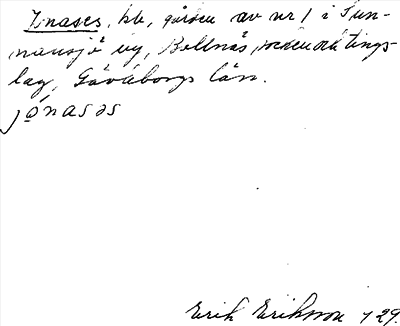 Jonases, hb, gården av nr 1 i Sun-
nansjö by, Bollnäs socken och tings-
lag, Gävleborgs län.
jónasəs
Erik Eriksson 29.